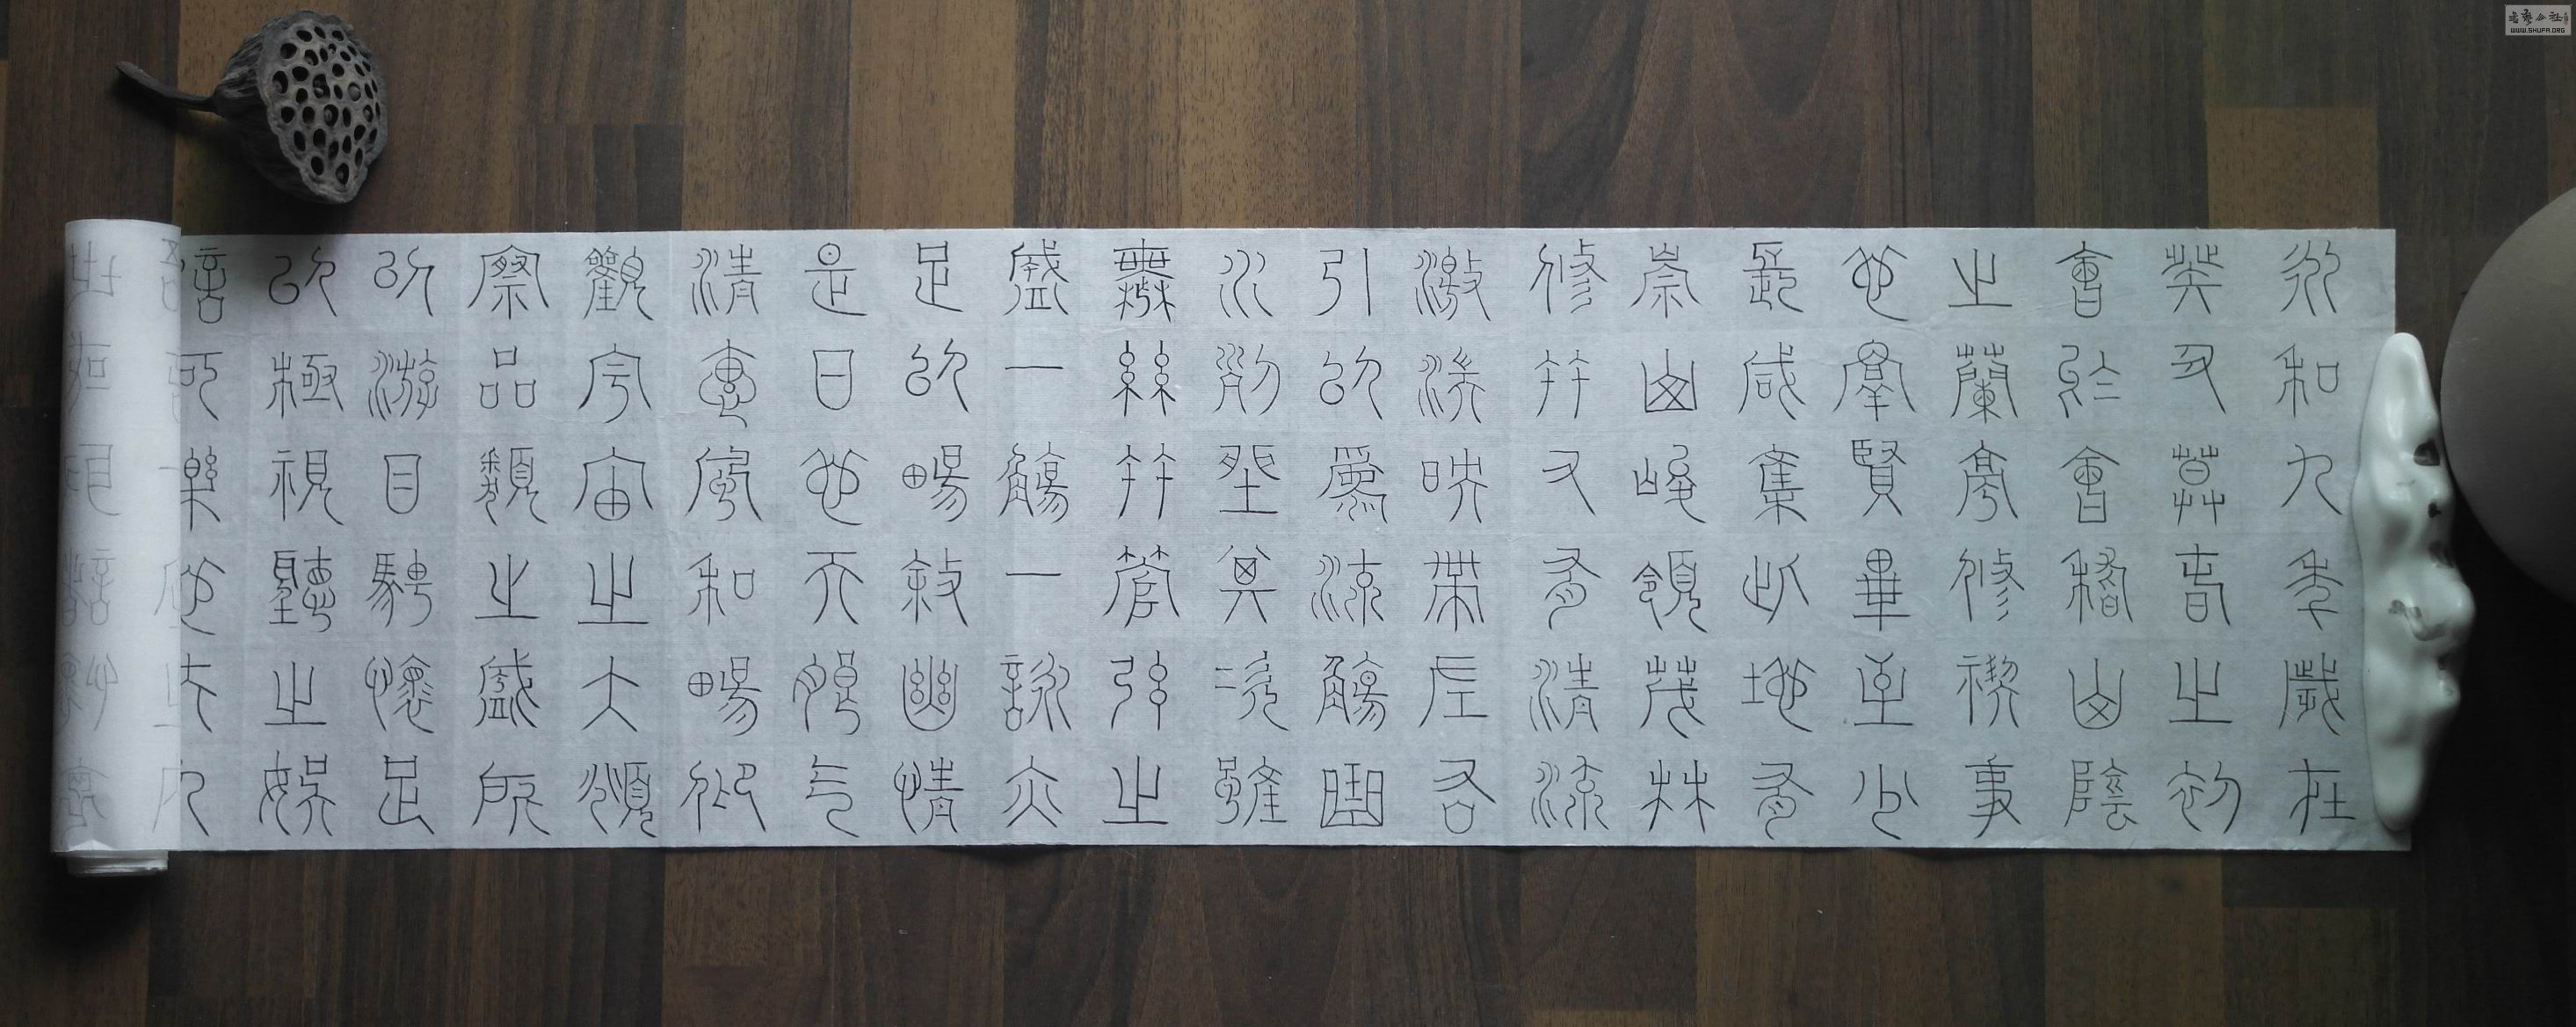 永和九年歲在
癸丑暮春之初
會於會稽山陰
之蘭亭修禊事
也羣賢畢至少
長咸集此地有
崇山峻領茂林
修竹又有清流
激湍映帶左右
引以為流觴曲
水列坐其次雖
無絲竹管弦之
盛一觴一詠亦
足以暢敘幽情
是日也天朗气
清惠風和暢仰
觀宇宙之大俯
察品類之盛所
以游目騁懷足
以極視聽之娛
信可樂也夫人
书艺公社
WWW.SHUFA.ORG